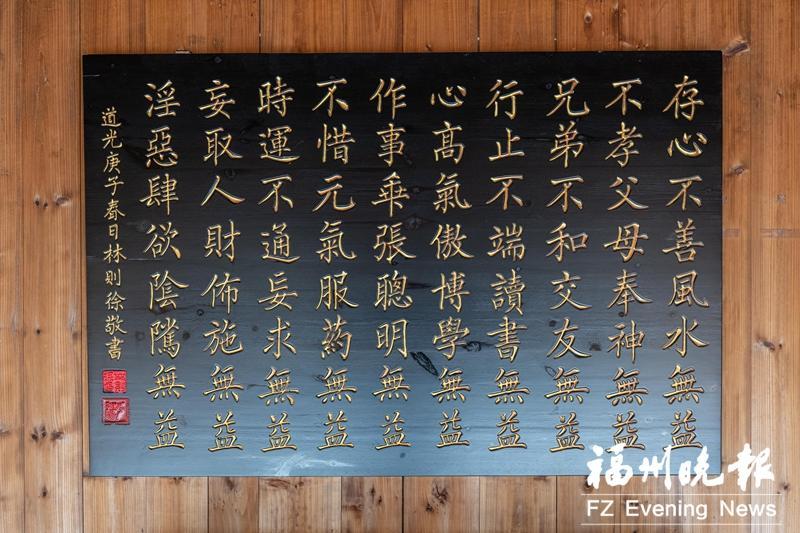 存心不善風水無益
不孝父母奉神無益
兄弟不和交友無益
行止不端讀書無益
心高氣傲博學無益
作事乖張聰明無益
不惜元氣服药無益
時運不通妄求無益
妄取人財佈施無益
淫惡肆欲陰騭無益
道光庚子春日林則徐敬書
福州晚報
FZ Evening News